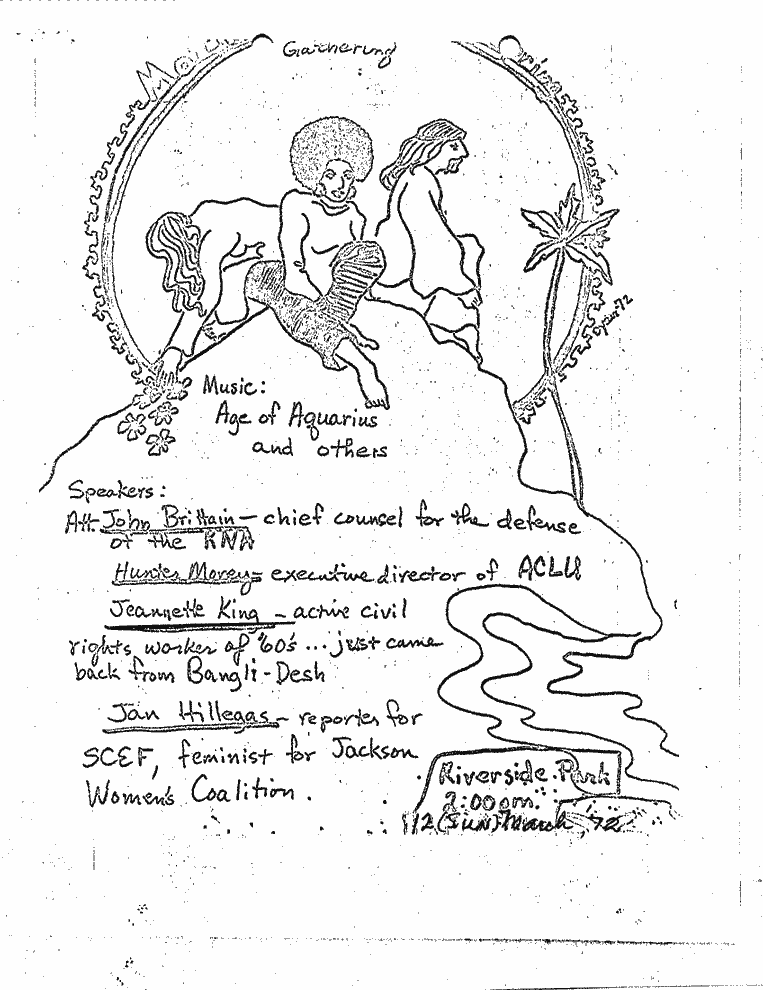 Gathering
Music:
Age of Aquarius
and others
Speakers:
Att. John Brittain - chief counsel for the defense
of the RNA
Hunter Morey - executive director of ACLU
Jeannette King - active civil
rights worker of '60's ... just came
back from Bangli-Desh
Jan Hillegas - reporter for
SCEF, feminist for Jackson
Women's Coalition.
Riverside Park
2:00pm.
12 (SUN) March, 72